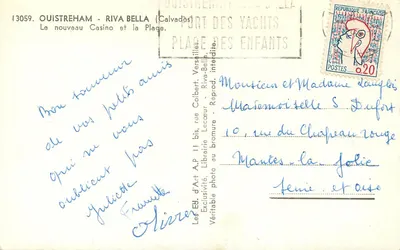 13059. OUISTREHAM - RIVA BELLA (Calvados)
Le nouveau Casino et la Plage.
PORT DES YACHTS
PLAGE DES ENFANTS
POSTES 0,20
Bon souvenir
de vos petits amis
qui ne vous
oublient pas
Juliette
Francette
Olivier
Les Ed. d'Art A.P. 11 bis, rue Colbert Versailles
Exclusivité, Librairie Lecœur - Riva-Bella
Véritable photo au bromure - Reprod. interdite.
Monsieur et Madame
Mademoiselle S Dufort
10, rue du Chapeau rouge
Mantes la Jolie
Seine et oise